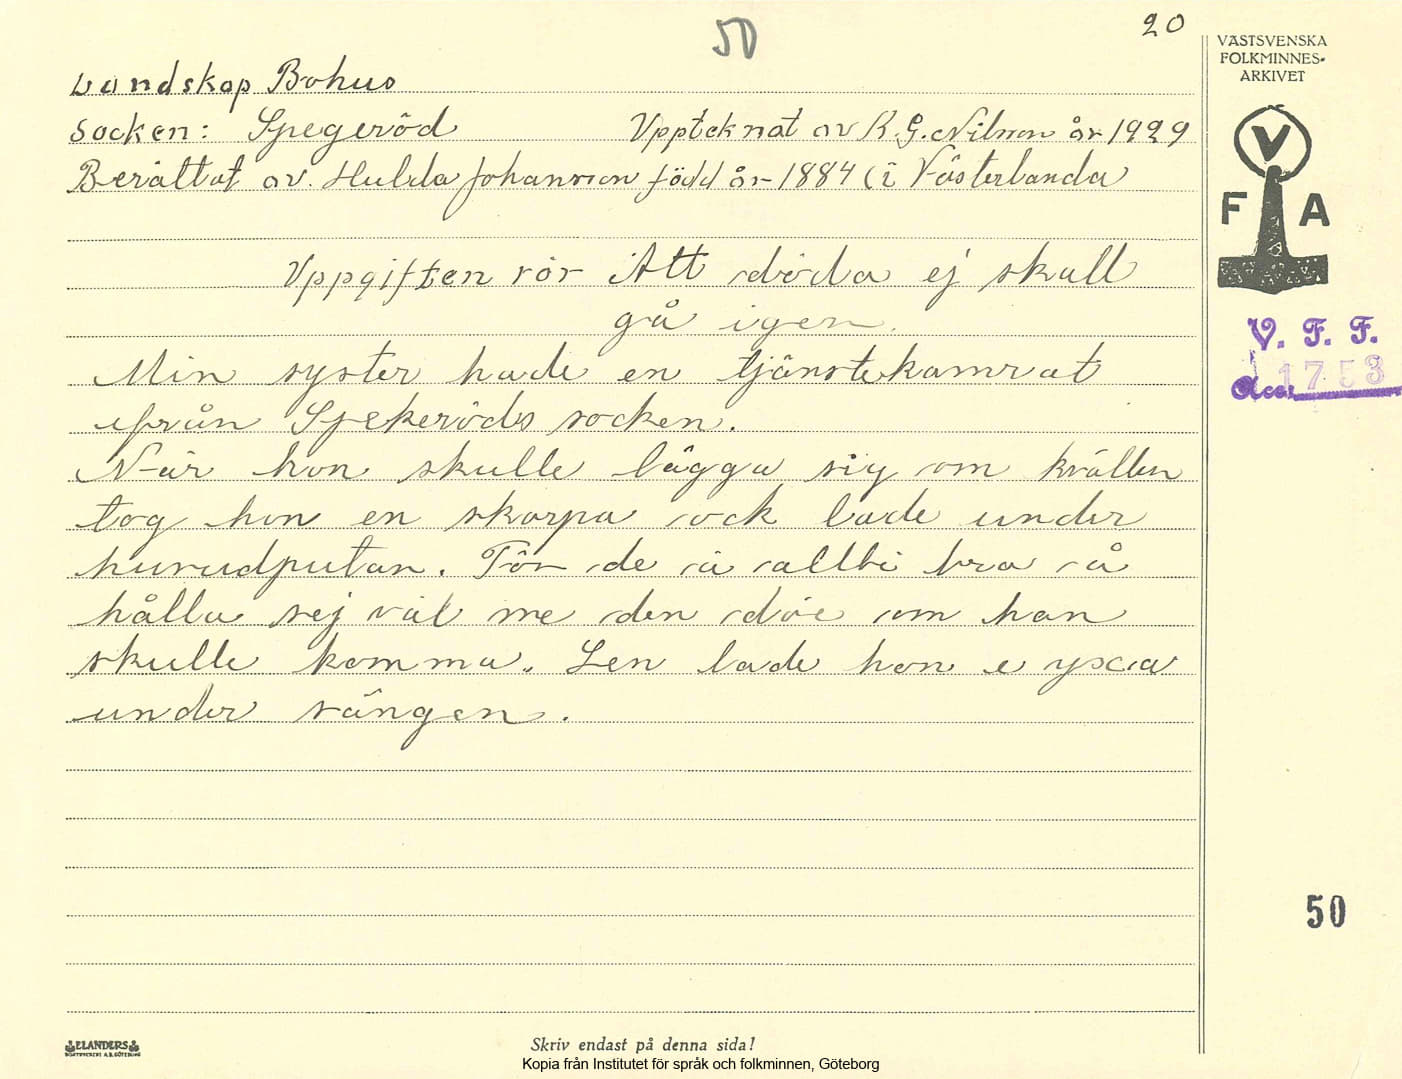 50
20
Landskap Bohus
Socken: Spegeröd Uppteknat av K.G. Nilsson år 1929
Berättat av. Hulda Johansson född år 1884 (i Västerlanda
Uppgiften rör Att döda ej skall
gå igen.
Min syster hade en tjänstekamrat
ifrån Spekeröds socken.
När hon skulle lägga sig om kvällen
tog hon en skorpa ock lade under
huvudputan. För de ä alltti bra å
hålla sej väl me den döe om han
skulle komma. Sen lade hon e yxa
under sängen.
VÄSTSVENSKA
FOLKMINNES-
ARKIVET
V
F A
V. F. F.
Acc. 1753
50
ELANDERS
Skriv endast på denna sida!
Kopia från Institutet för språk och folkminnen, Göteborg